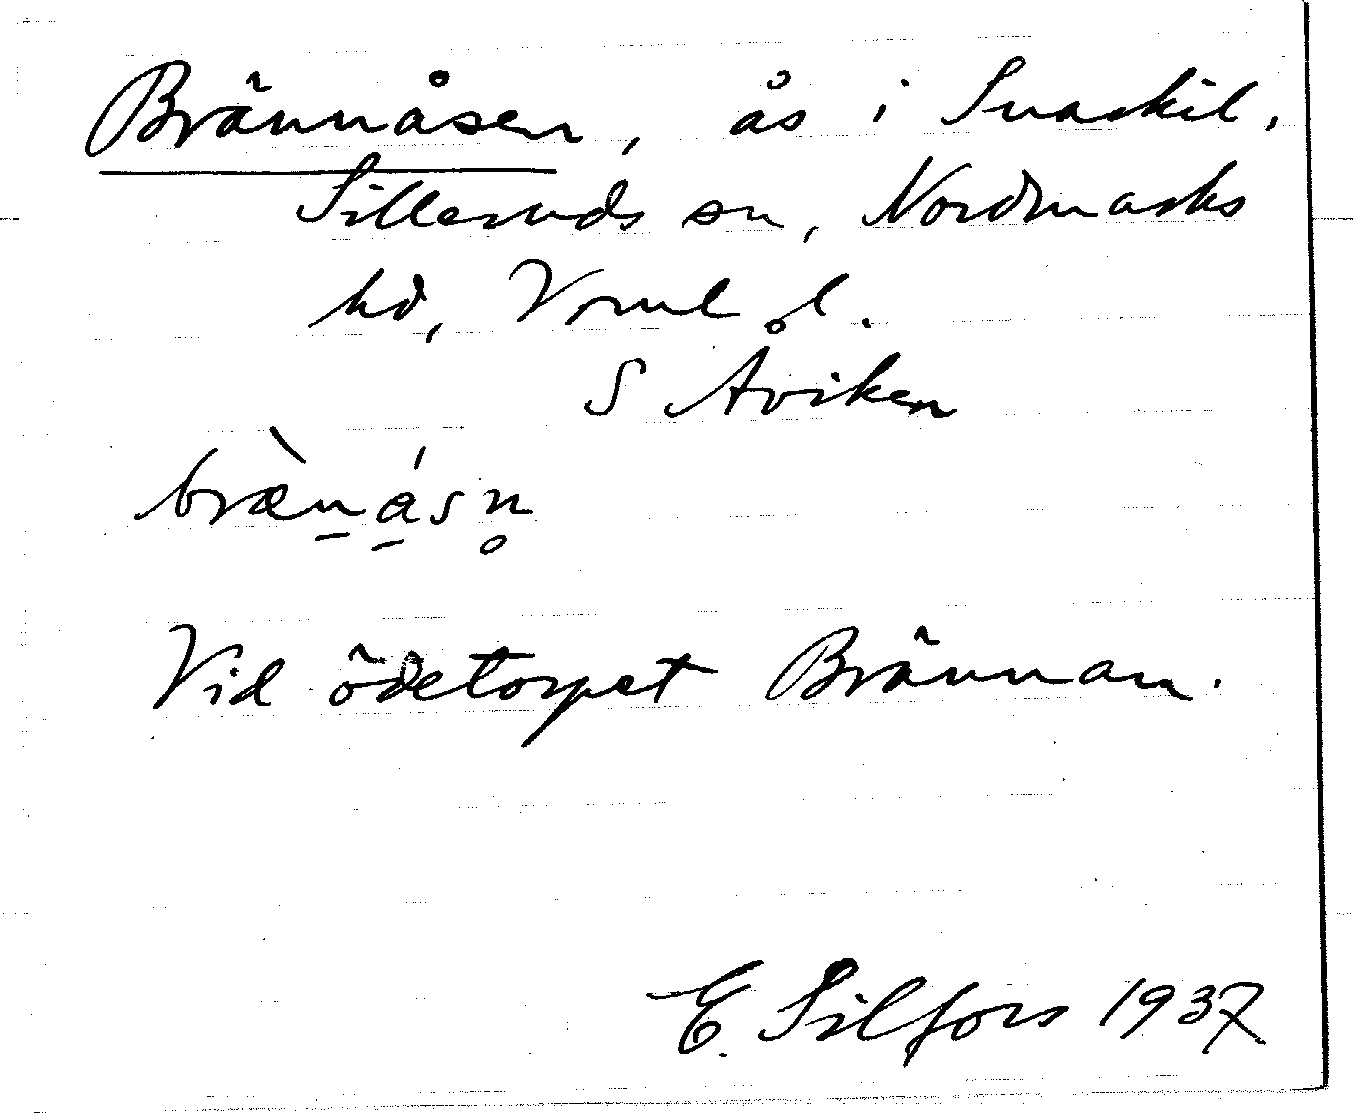 Brännåsen, ås i Snarkil,
Silleruds sn, Nordmarks
hd, Verml l.
S Åviken
bræ̀n̠á̠sn̥
Vid ödetorpet Brännan.
E. Silfors 1937